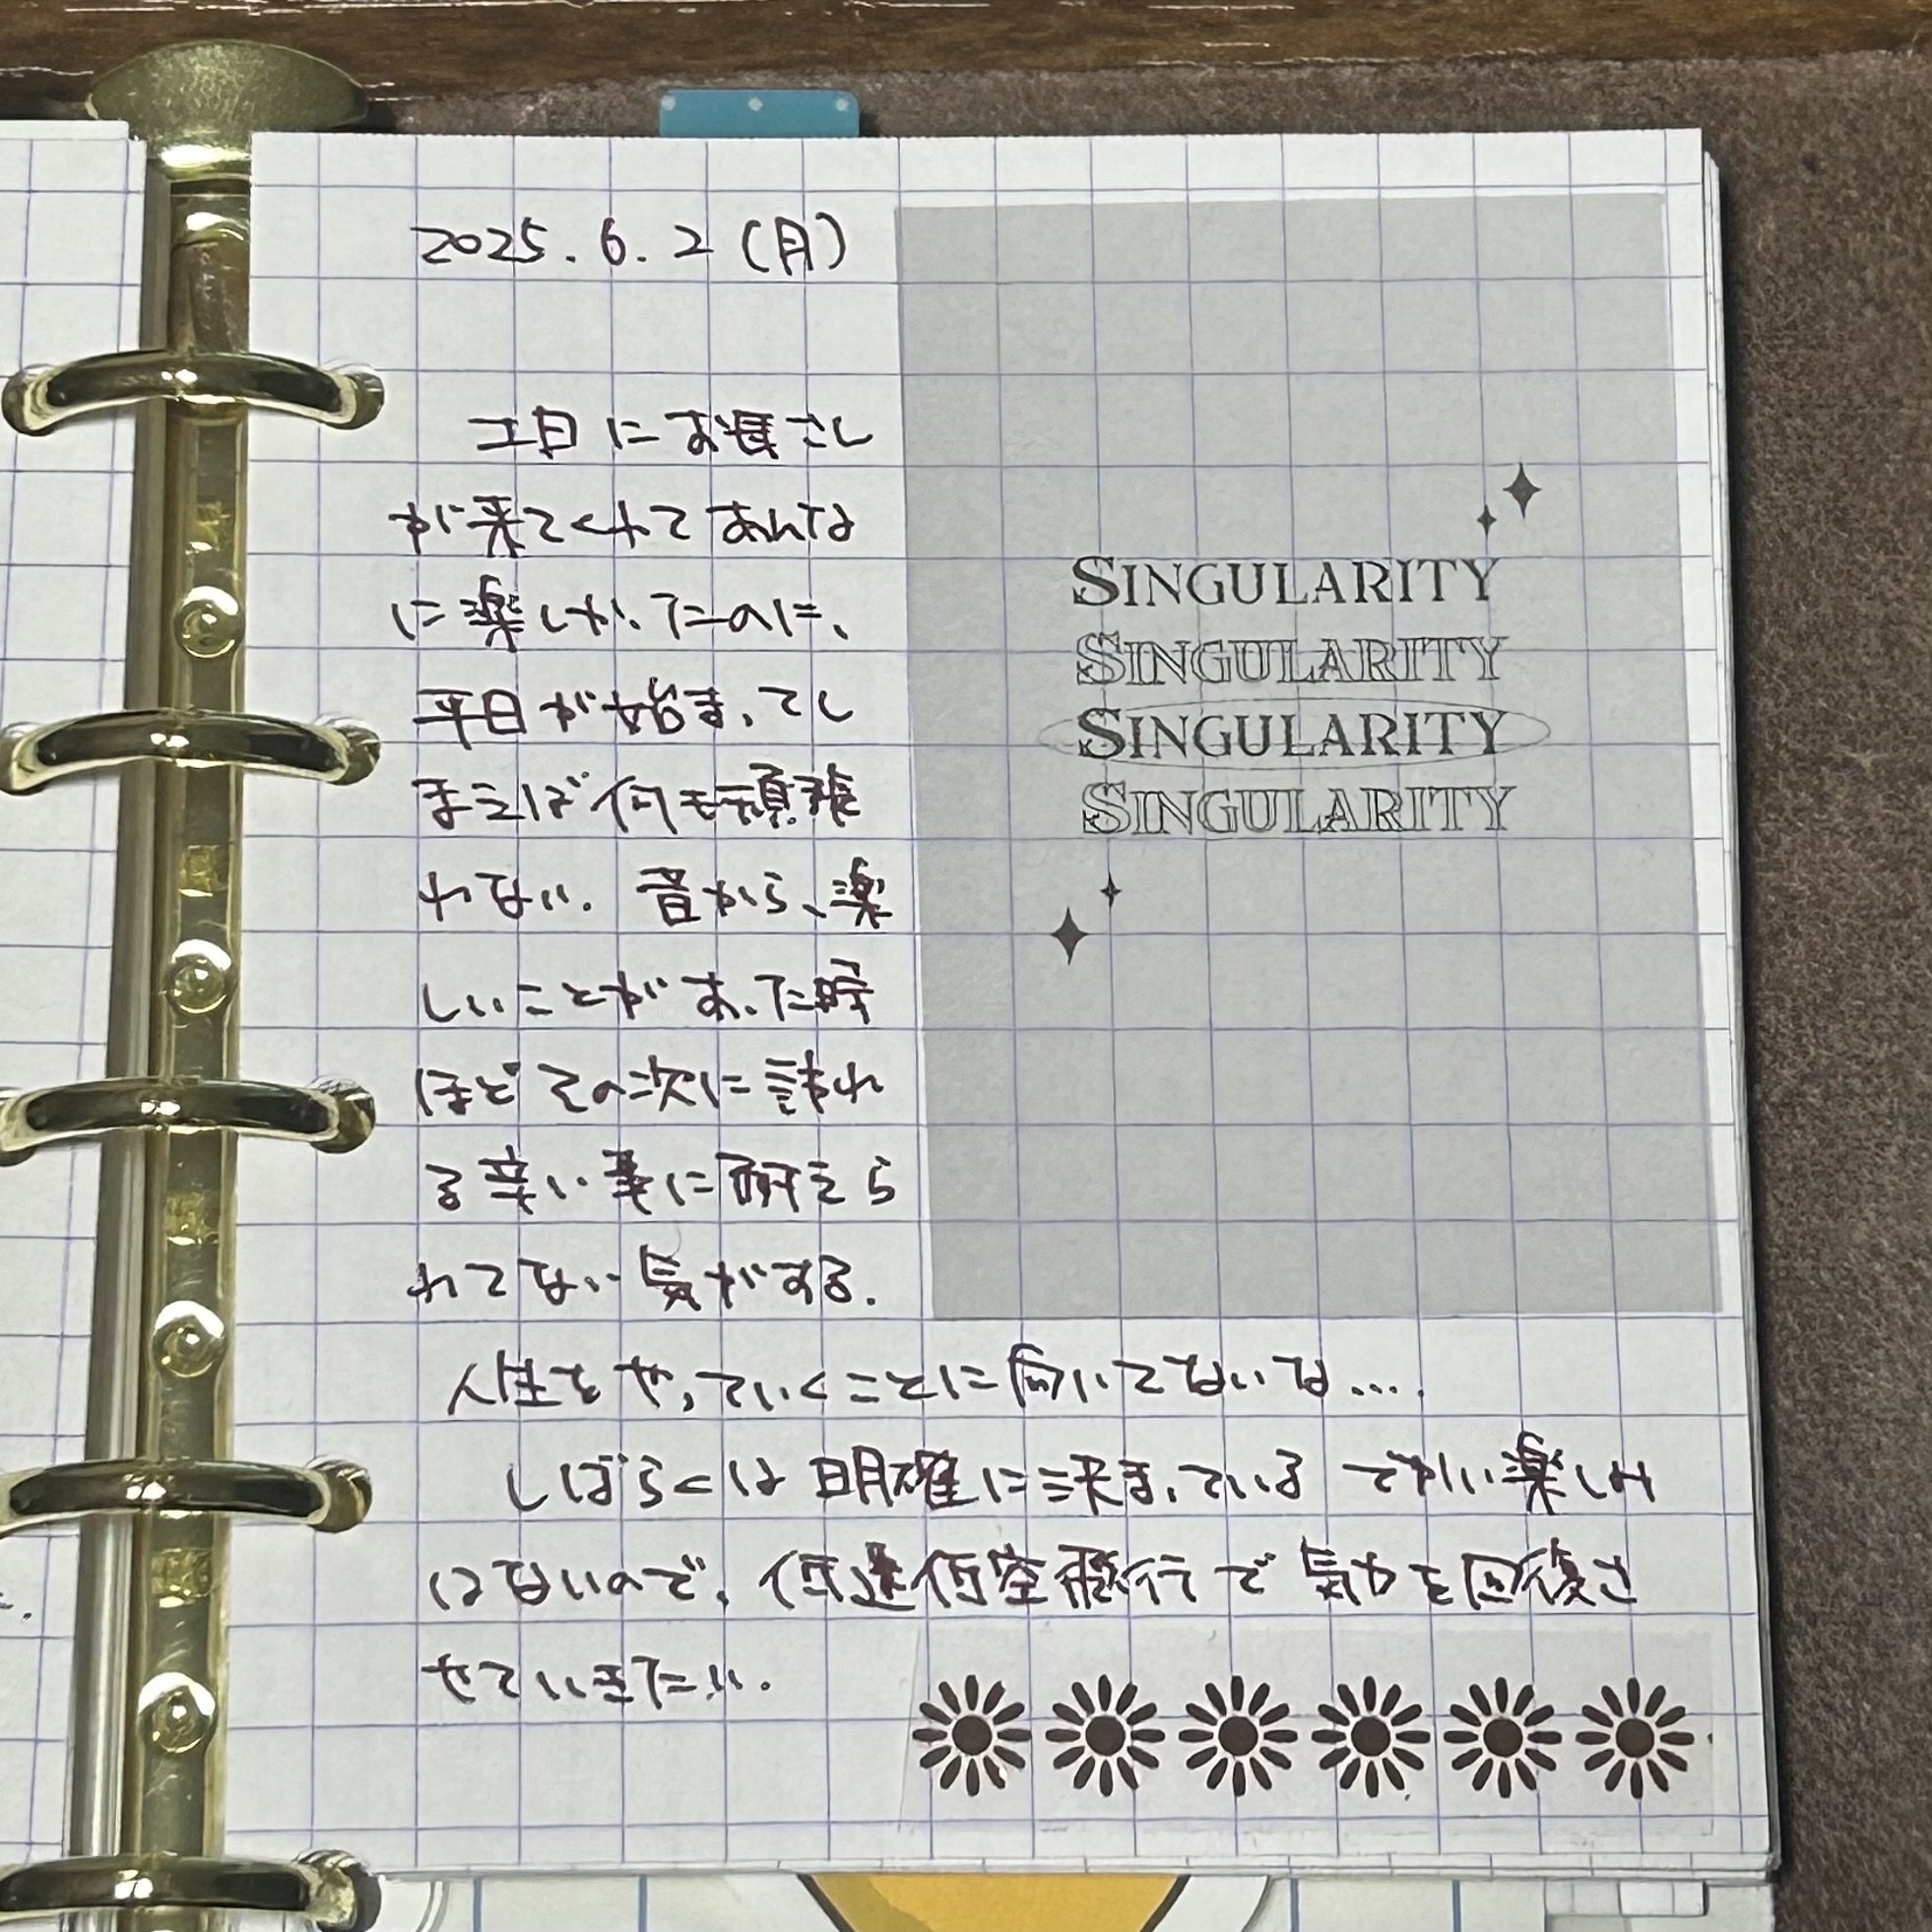 2025.6.2(月)
土日にお母さん
が来てくれてあんな
に楽しかったのに、
平日が始まってし
まえば何も頑張
れない。昔から、楽
しいことがあった時
ほどその次に訪れ
る辛い事に耐えら
れてない気がする。
人生をやっていくことに向いてないな….
しばらくは明確に決まっている でかい楽しみ
はないので、低速低空飛行で気力を回復さ
せていきたい。
SINGULARITY
SINGULARITY
SINGULARITY
SINGULARITY